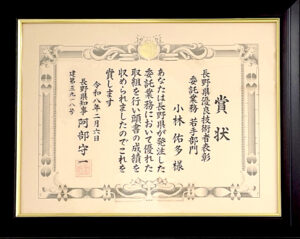 賞状
長野県優良技術者表彰
委託業務 若手部門
小林佑多様
あなたは長野県が発注した
委託業務において優れた
取組を行い顕著の成績を
収められましたのでこれを
賞します
令和八年二月六日
長野県知事 阿部守一
建第三九一八号